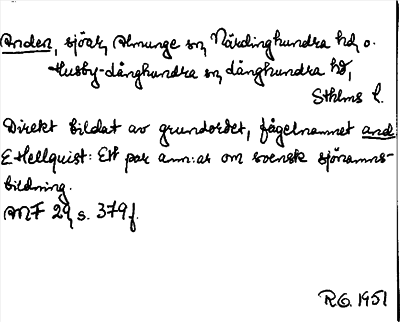 Anden, sjöar, Almunge sn, Närdinghundra hd, o.
Husby-Långhundra sn, Långhundra hd,
Sthlms l.
Direkt bildat av grundordet, fågelnamnet and
E Hellquist: Ett par anm:ar om svensk sjönamns-
bildning.
ANF 29, s. 379f.
R.G. 1951